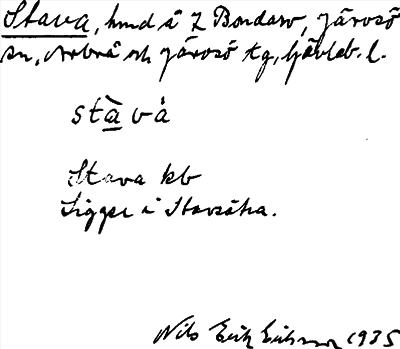 Stava, hmd å Z Bondarv, Järvsö
sn, Arbrå och Järvsö tg, Gävleb. l.
stàvá
Stava kb
Ligger i Stavsätra.
Nils Erik Eriksson 1935